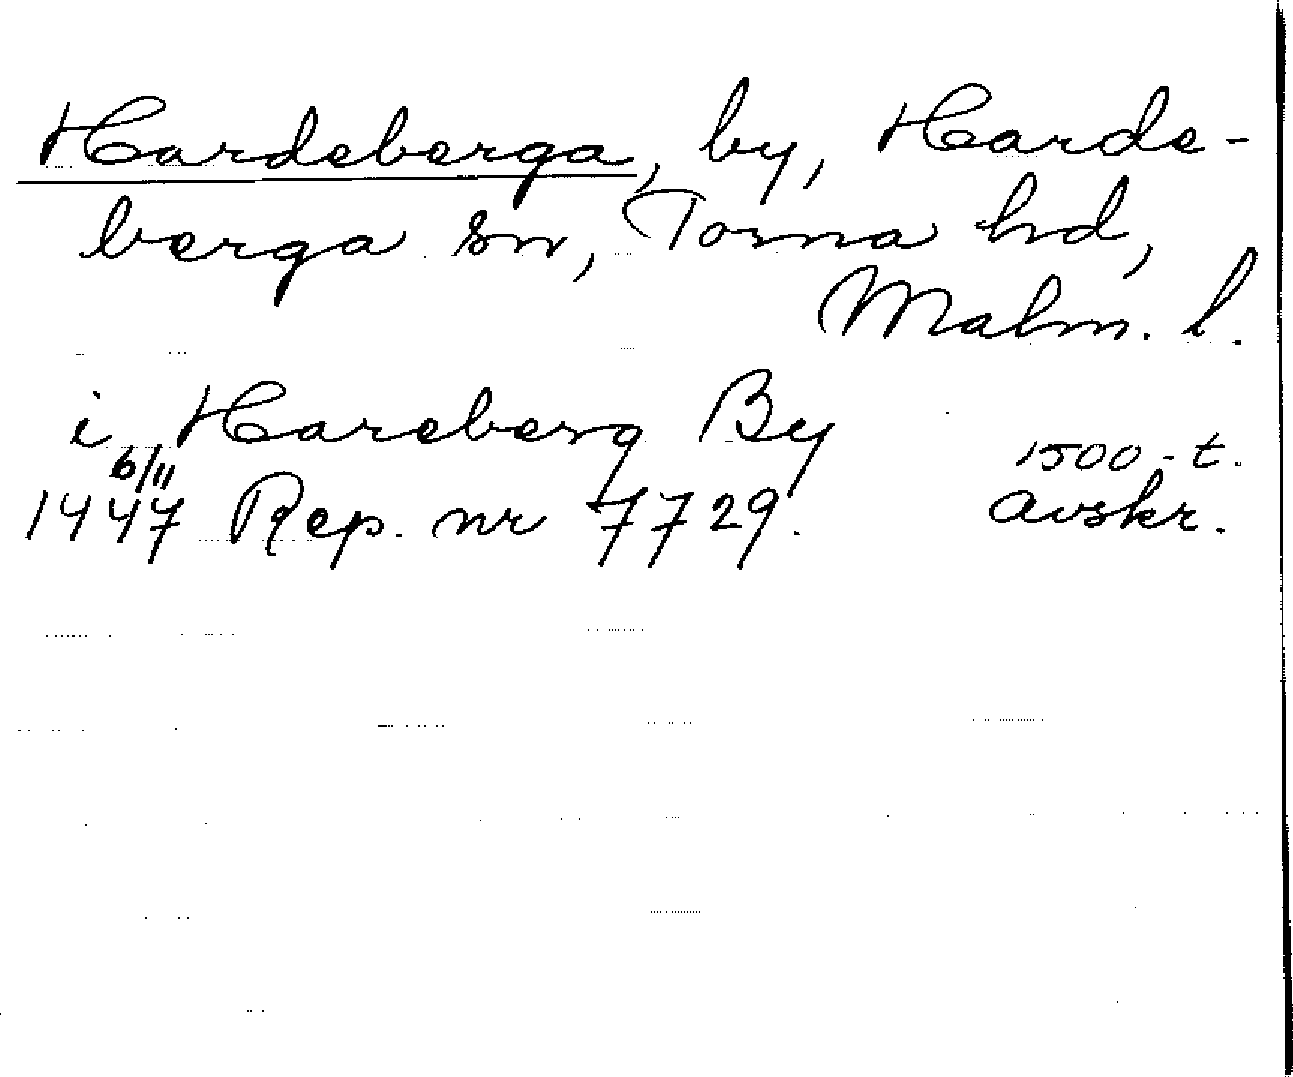 Hardeberga, by, Harde-
berga sn, Torna hd,
Malm. l.
i Hareberg By
6/11
1500-t.
1447 Rep. nr 7729.
avskr.